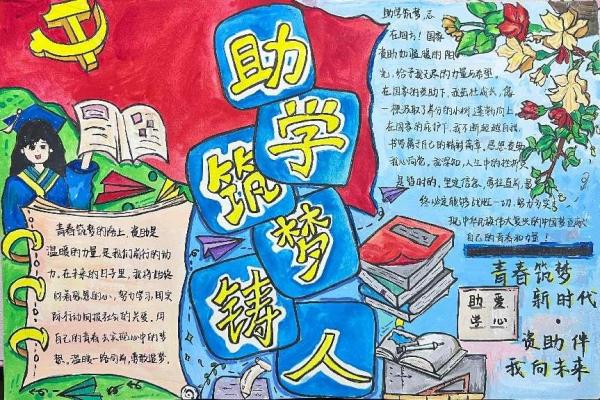 助
学
筑
梦
铸
人
助学筑梦，忘
在因为！国家
资助如温暖的阳
光，给予我无尽的力量与希望。
在国家的资助下，我茁壮成长，像
一棵汲取了养分的小树，蓬勃向上。
在国家的庇护下，我不断超越自我，
书写属于自己的精彩篇章。感恩资助
我心向党，我深知，人生中的挫折只
是暂时的，坚定信念，勇往直前，最
终必定能够战胜一切，努力为实
现中华民族伟大复兴的中国梦贡献
自己的青春和力量！
青春筑梦的路上，资助是
温暖的力量，是我们前行的动
力。在未来的日子里，我将始终
怀着感恩的心，努力学习，用实
际行动回报社会的关爱。用
自己的青春去实现心中的梦
想。温暖一路向前，勇敢追梦。
助爱
学心
青春筑梦
新时代
·
资助伴
我向未来